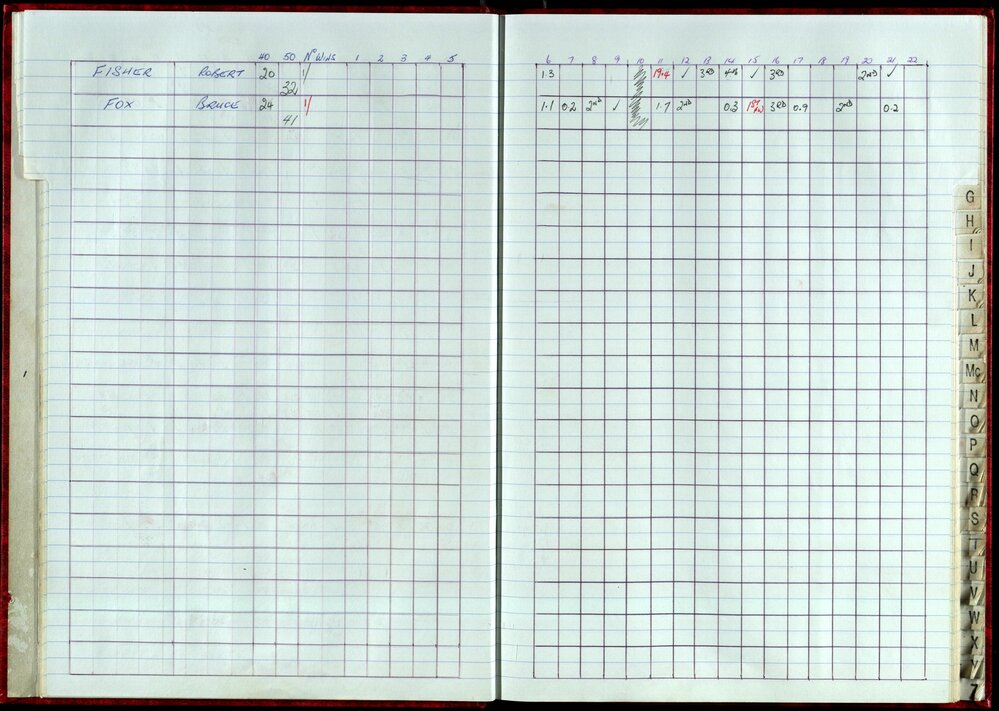 40 50 Nº WINS 1 2 3 4 5 6 7 8 9 10 11 12 13 14 15 16 17 18 19 20 21 22
FISHER ROBERT 20 1/ 1.3 19.4 ✓ 3RD 4th ✓ 3RD 2ND ✓
32
FOX BRUCE 24 1/ 1.1 0.2 2ND ✓ 1.7 2ND 0.3 1ST 3RD 0.9 2ND 0.2
41
G
H
I
J
K
L
M
Mc
N
O
P
Q
R
S
T
U
V
W
X
Y
Z